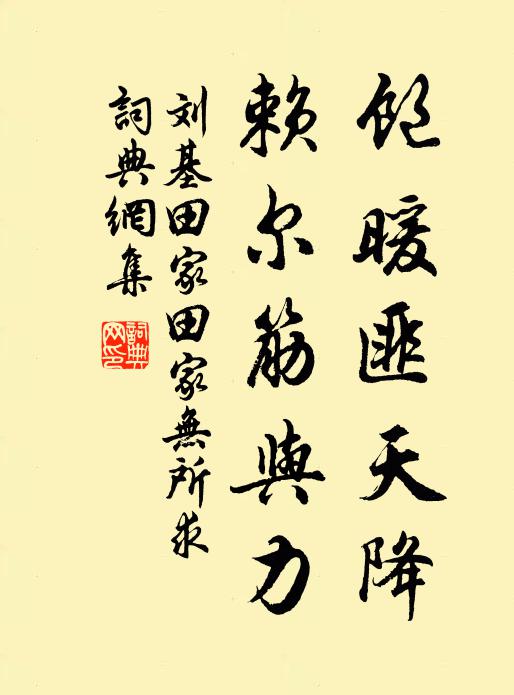 饱暖匪天降
赖尔筋與力
刘基田家田家無所求
詞典網集
詞典網印